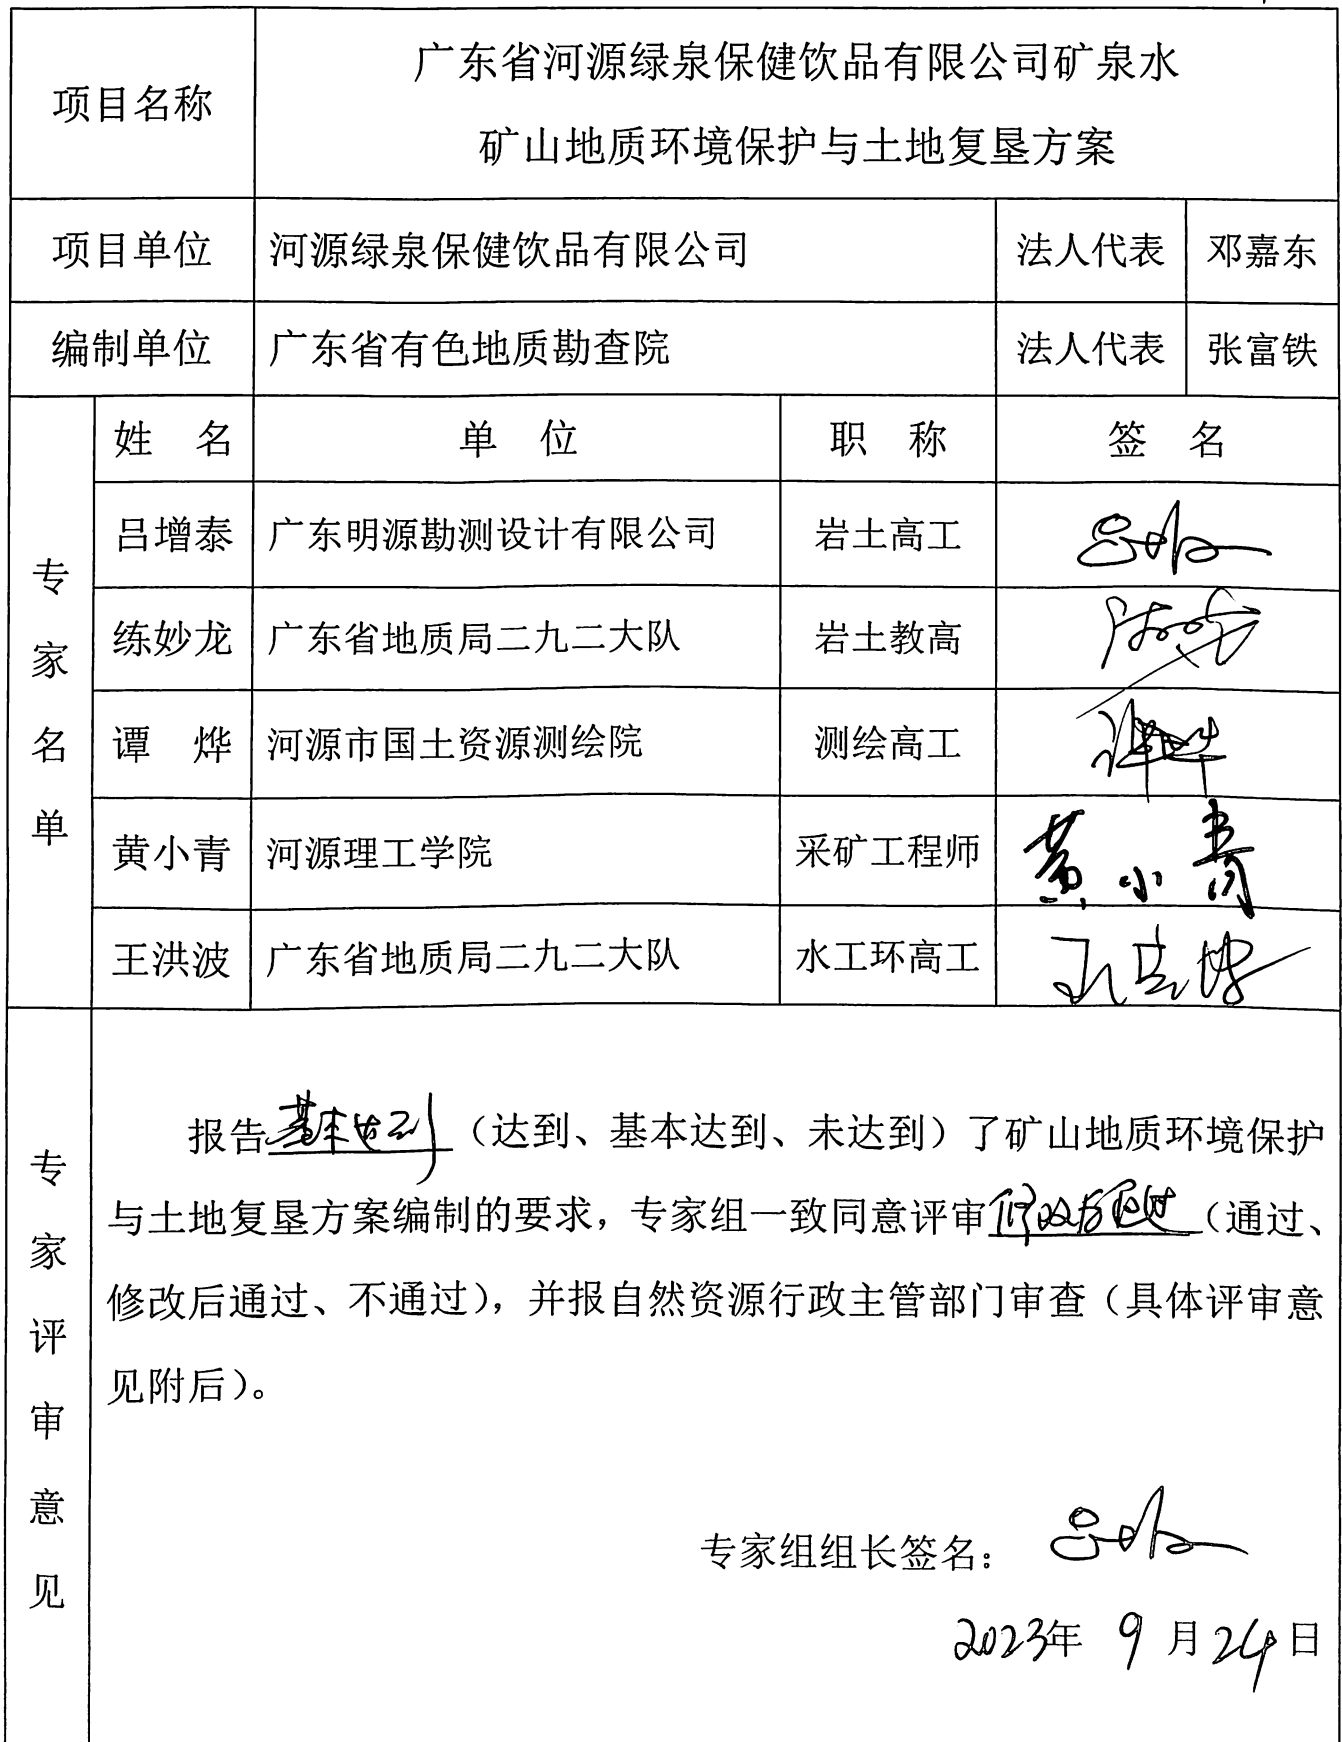 项目名称
广东省河源绿泉保健饮品有限公司矿泉水
矿山地质环境保护与土地复垦方案
项目单位 河源绿泉保健饮品有限公司 法人代表 邓嘉东
编制单位 广东省有色地质勘查院 法人代表 张富铁
专家名单
姓 名 单 位 职 称 签 名
吕增泰 广东明源勘测设计有限公司 岩土高工
练妙龙 广东省地质局二九二大队 岩土教高
谭 烨 河源市国土资源测绘院 测绘高工 谭烨
黄小青 河源理工学院 采矿工程师 黄小青
王洪波 广东省地质局二九二大队 水工环高工 王洪波
专家评审意见
报告基本达到（达到、基本达到、未达到）了矿山地质环境保护
与土地复垦方案编制的要求，专家组一致同意评审修改后通过（通过、
修改后通过、不通过），并报自然资源行政主管部门审查（具体评审意
见附后）。
专家组组长签名：
2023年 9月24日